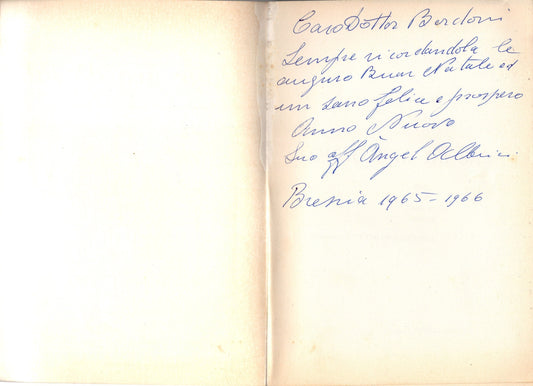 Caro Dottor Bordoni
Sempre ricordandola le
auguro Buon Natale ed
un sano felice e prospero
Anno Nuovo
Suo aff Àngel
Brescia 1965-1966